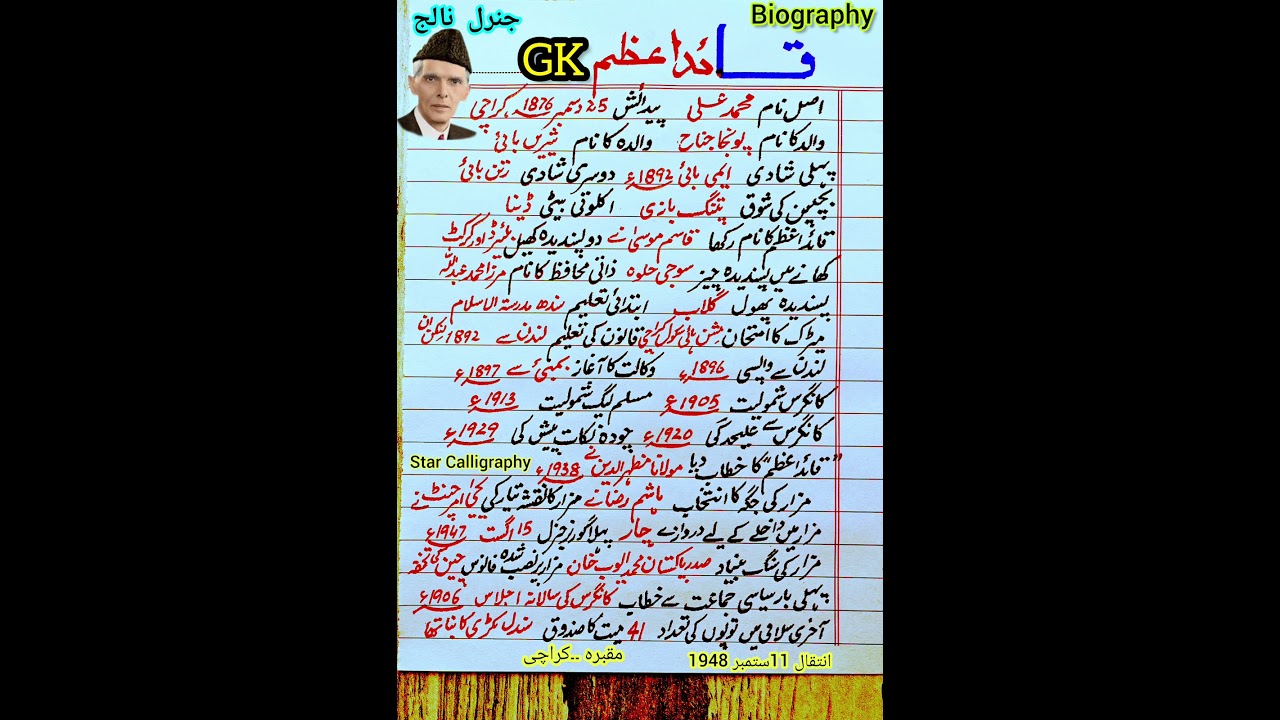 جنرل نالج
Biography
قائداعظم GK
اصل نام محمد علی پیدائش 25 دسمبر 1876ء کراچی
والد کا نام پونجا جناح والدہ کا نام شیریں بائی
پہلی شادی ایمی بائی 1892ء دوسری شادی رتن بائی
بچپن کی شوق پتنگ بازی اکلوتی بیٹی ڈینا
قائداعظم کا نام رکھا قاسم موسیٰ نے دو پسندیدہ کھیل بلیرڈ اور کرکٹ
کھانے میں پسندیدہ چیز سوجی حلوہ ذاتی محافظ کا نام مرزا محمد عبداللہ
پسندیدہ پھول گلاب ابتدائی تعلیم سندھ مدرسۃ الاسلام
میٹرک کا امتحان مشن ہائی سکول کراچی قانون کی تعلیم لندن سے 1892 لنکن ان
لندن سے واپسی 1896ء وکالت کا آغاز بمبئی سے 1897ء
کانگرس شمولیت 1905ء مسلم لیگ شمولیت 1913ء
کانگرس سے علیحدگی 1920ء چودہ نکات پیش کی 1929ء
"قائداعظم" کا خطاب دیا مولانا مظہرالدین نے 1938ء
Star Calligraphy
مزار کی جگہ کا انتخاب ہاشم رضا نے مزار کا نقشہ تیار کی یحیٰی مرچنٹ نے
مزار میں داخلے کے لیے دروازے چار پہلا گورنر جنرل 15 اگست 1947ء
مزار کی سنگ بنیاد صدر پاکستان محمد ایوب خان مزار پر نصب شدہ فانوس چین کی تحفہ
پہلی بار سیاسی جماعت سے خطاب کانگرس کی سالانہ اجلاس 1906ء
آخری سلامی میں توپوں کی تعداد 41 میت کا صندوق صندل لکڑی کا بنا تھا
انتقال 11ستمبر 1948
مقبرہ ۔۔کراچی